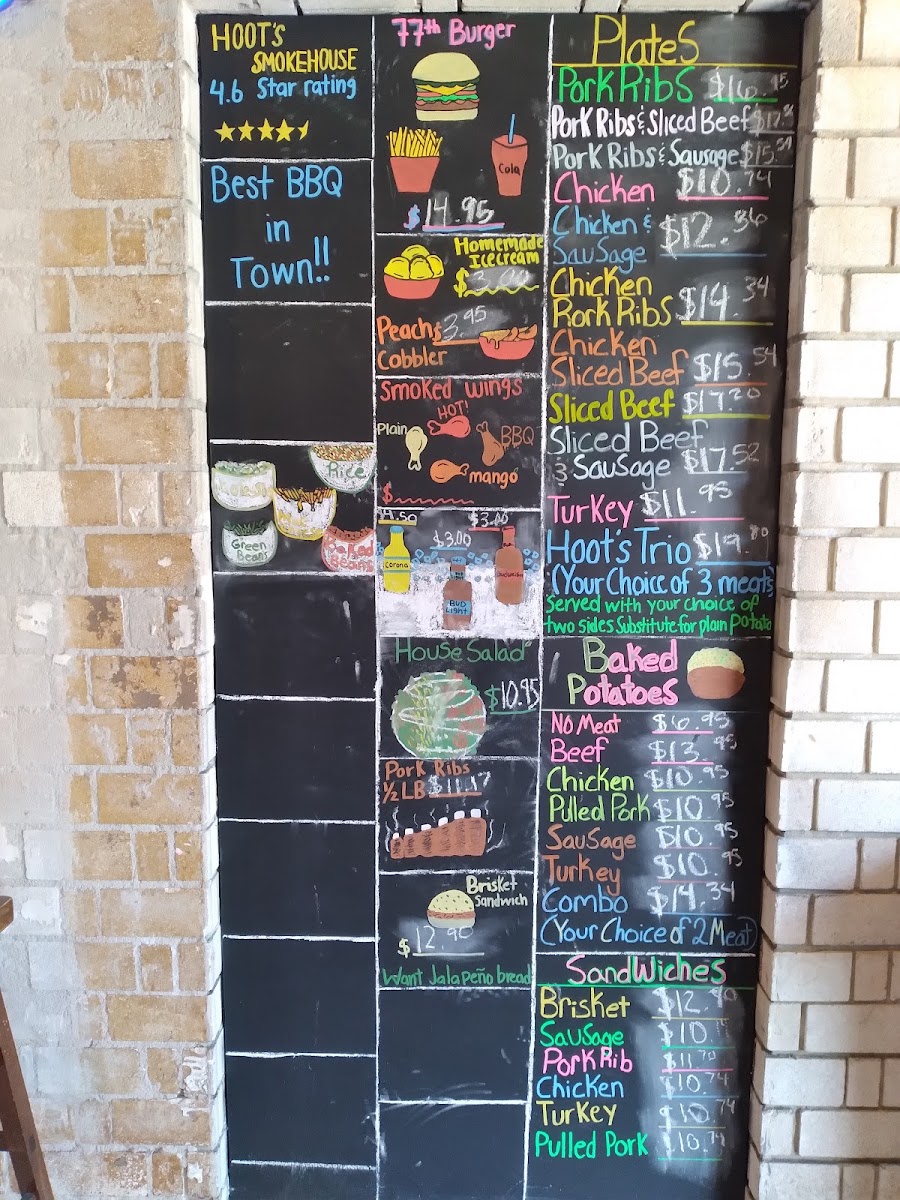 HOOT'S
SMOKEHOUSE
4.6 Star rating
Best BBQ
in
Town!!
Rice
Green
Beans
Baked
Beans
77th Burger
Cola
$14.95
Homemade
Icecream
$3.00
Peach $3.95
Cobbler
Smoked wings
HOT!
Plain
BBQ
mango
$
$3.00
$3.00
Corona
BUD
Light
House Salad
$10.95
Pork Ribs
1/2 LB $11.17
Brisket
Sandwich
$12.90
Want Jalapeño bread
Plates
Pork Ribs $16.95
Pork Ribs & Sliced Beef
Pork Ribs & Sausage $15.59
Chicken $10.74
Chicken & $12.36
Sausage
Chicken
Rork Ribs $14.34
Chicken
Sliced Beef $15.54
Sliced Beef $17.20
Sliced Beef
& Sausage $17.52
Turkey $11.95
Hoot's Trio $19.80
(Your Choice of 3 meats)
Served with your choice of
two sides Substitute for plain Potato
Baked
Potatoes
No Meat $6.95
Beef $13.95
Chicken $10.95
Pulled Pork $10.95
Sausage $10.95
Turkey $10.95
Combo $14.34
(Your Choice of 2 Meat)
Sandwiches
Brisket $12.90
Sausage
Pork Rib $11.70
Chicken $10.74
Turkey $10.74
Pulled Pork $10.74